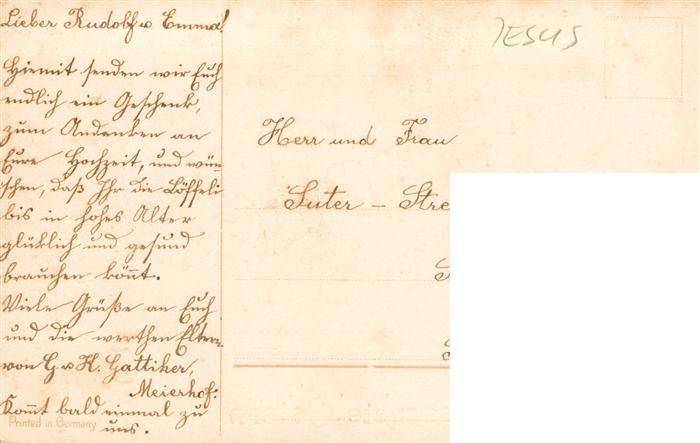 Lieber Rudolf u Emma!
Hiermit senden wir Euch
endlich ein Geschenk,
zum Andenken an
Eure Hochzeit, und wün-
schen, daß Ihr die Löffeli
bis in hohes Alter
glüklich und gesund
brauchen könnt.
Viele Grüße an Euch
und die werthen Eltern
von G u H. Gattiker,
Meierhof.
Kommt bald einmal zu
uns.
Printed in Germany
JESUS
Herr und Frau
Suter - Stre